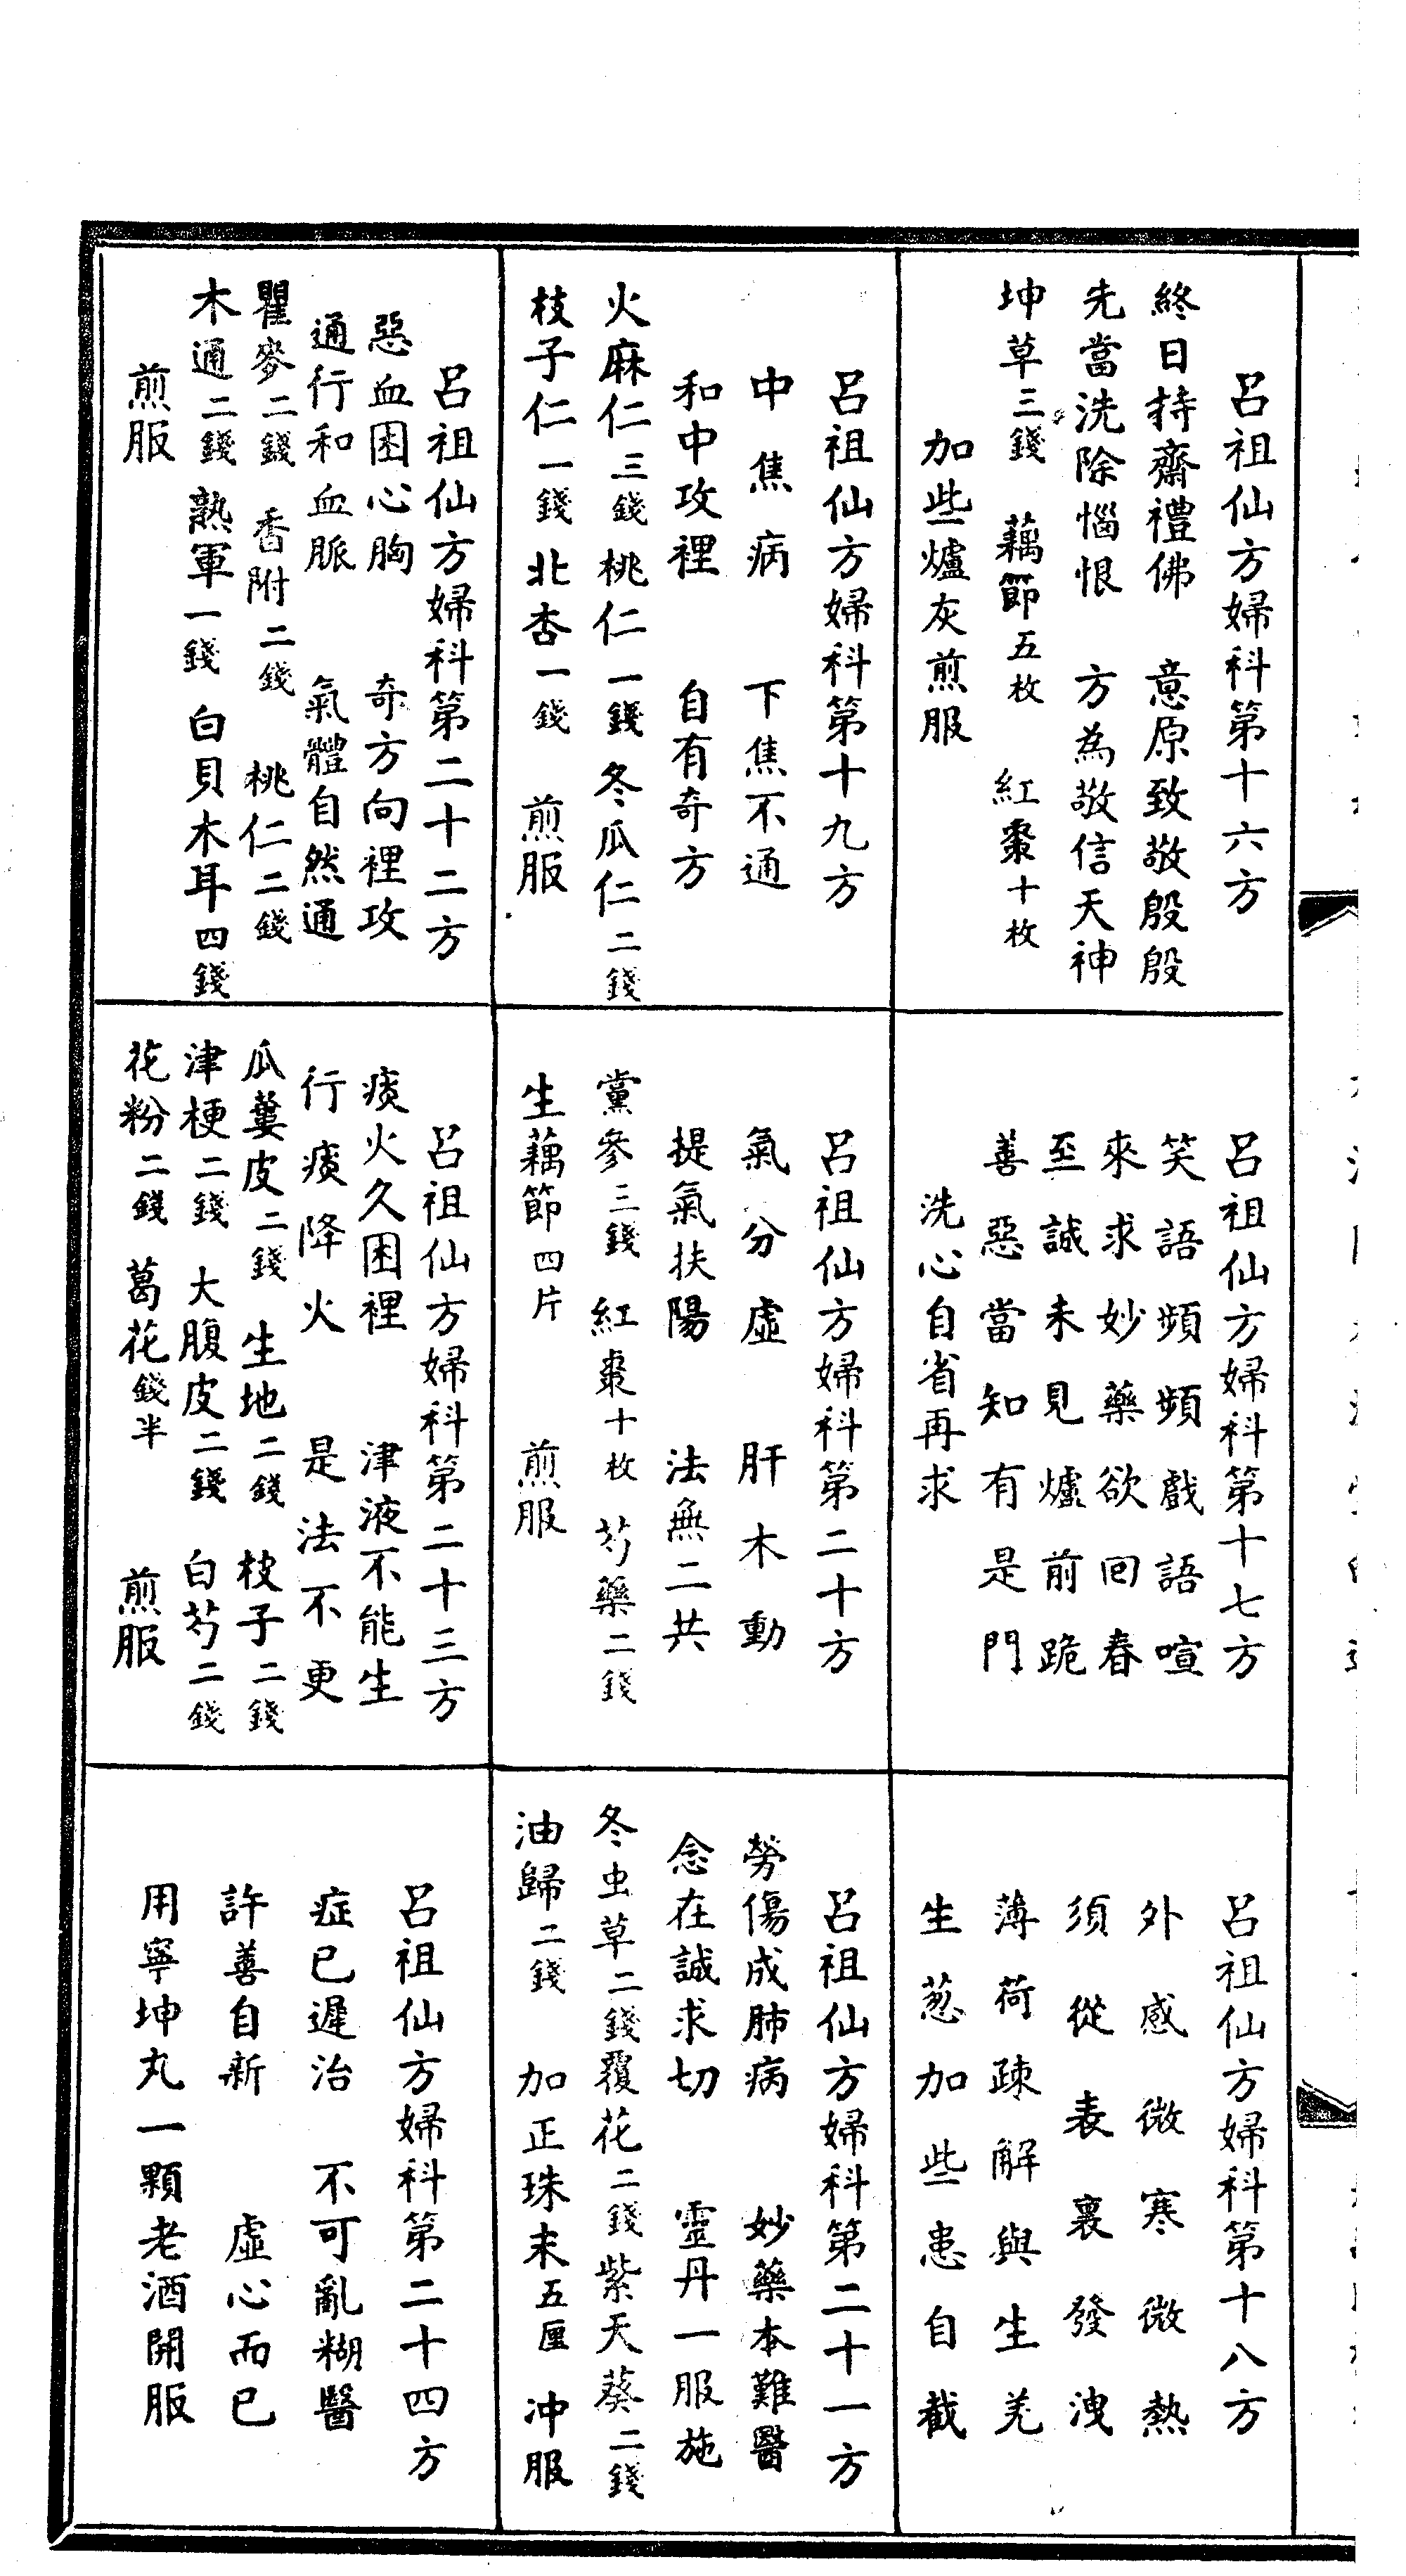 呂祖仙方婦科第十六方
終日持齋禮佛　意原致敬殷殷
先當洗除惱恨　方為敬信天神
坤草三錢　藕節五枚　紅棗十枚
加些爐灰煎服
呂祖仙方婦科第十七方
笑語頻頻戲語喧
來求妙藥欲回春
至誠未見爐前跪
善惡當知有是門
洗心自省再求
呂祖仙方婦科第十八方
外感微寒微熱
須從表裏發洩
薄荷疎解與生羌
生葱加些患自截
呂祖仙方婦科第十九方
中焦病　下焦不通
和中攻裡　自有奇方
火麻仁三錢　桃仁一錢　冬瓜仁二錢
枝子仁一錢　北杏一錢　煎服
呂祖仙方婦科第二十方
氣分虛　肝木動
提氣扶陽　法無二共
黨參三錢　紅棗十枚　芍藥二錢
生藕節四片　煎服
呂祖仙方婦科第二十一方
勞傷成肺病　妙藥本難醫
念在誠求切　靈丹一服施
冬虫草二錢　覆花二錢　紫天葵二錢
油歸二錢　加正珠末五厘　冲服
呂祖仙方婦科第二十二方
惡血困心胸　奇方向裡攻
通行和血脈　氣體自然通
瞿麥二錢　香附二錢　桃仁二錢
木通二錢　熟軍一錢　白貝木耳四錢
煎服
呂祖仙方婦科第二十三方
痰火久困裡　津液不能生
行痰降火　是法不更
瓜蔞皮二錢　生地二錢　枝子二錢
津梗二錢　大腹皮二錢　白芍二錢
花粉二錢　葛花錢半　煎服
呂祖仙方婦科第二十四方
症已遲治　不可亂糊醫
許善自新　虛心而已
用寧坤丸一顆老酒開服